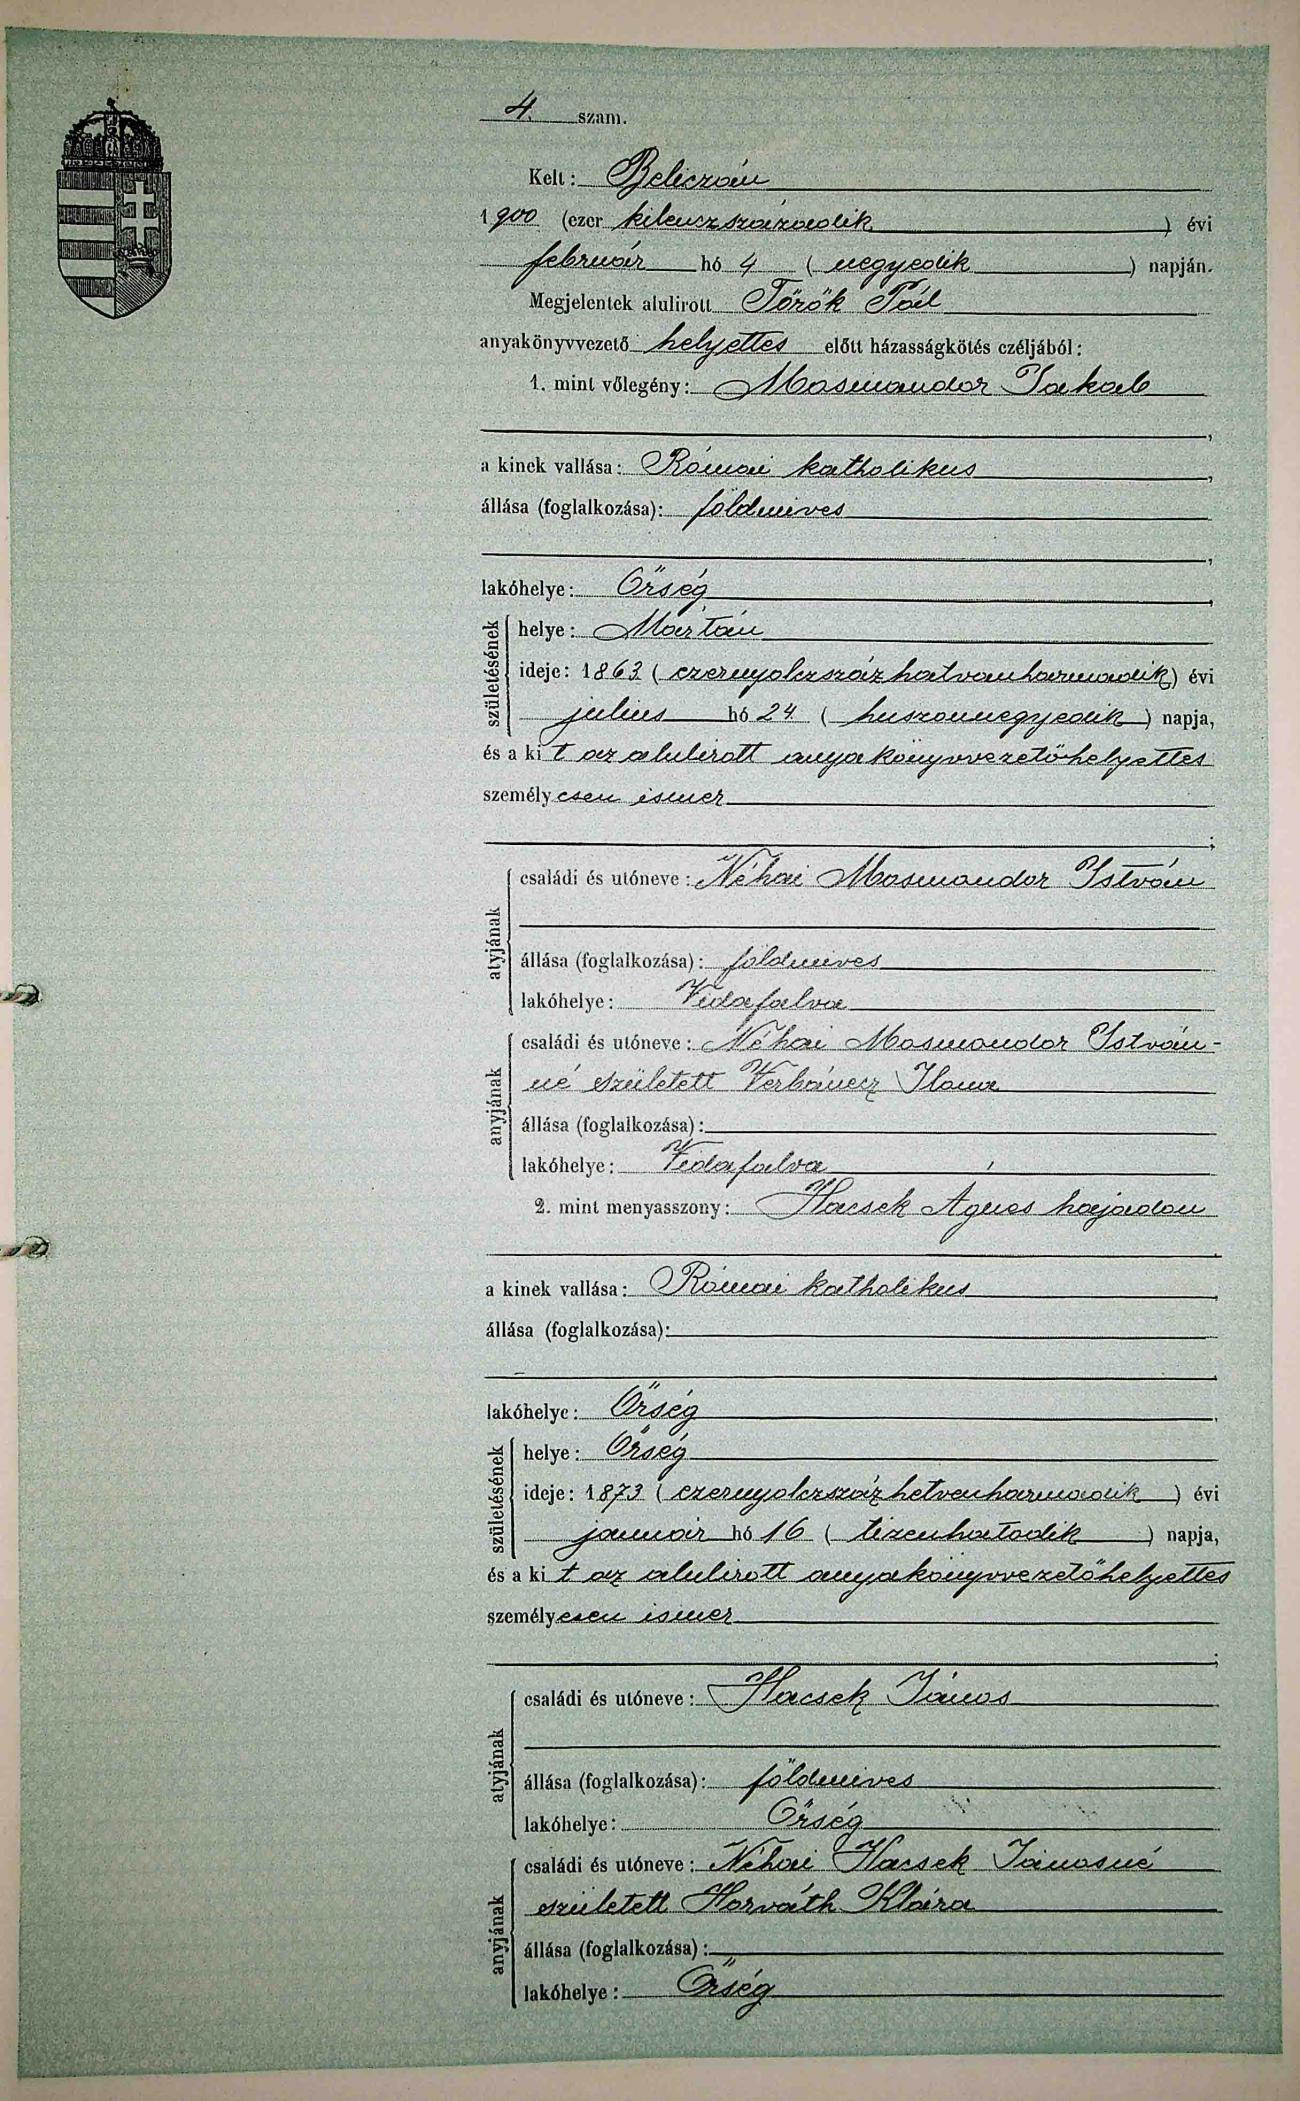 4. szam.
Kelt: Beliczán
1900 (ezer kilenczszázadik) évi
február hó 4 (negyedik) napján.
Megjelentek alulirott Török Pál
anyakönyvvezető helyettes előtt házasságkötés czéljából:
1. mint vőlegény: Mosmondor Jakab
a kinek vallása: Római katholikus,
állása (foglalkozása): földmives
lakóhelye: Őrség,
születésének
helye: Mártán
ideje: 1863 (ezernyolczszázhatvanharmadik) évi
julius hó 24 (huszonnegyedik) napja,
és a kit az alulirott anyakönyvvezetőhelyettes
személyesen ismer
;
atyjának
családi és utóneve: Néhai Mosmondor István
állása (foglalkozása): földmives
lakóhelye: Vidafalva
anyjának
családi és utóneve: Néhai Mosmondor István-
né született Verbánecz Ilona
állása (foglalkozása):
lakóhelye: Vidafalva
2. mint menyasszony: Hacsek Ágnes hajadon
a kinek vallása: Római katholikus,
állása (foglalkozása):
lakóhelye: Őrség,
születésének
helye: Őrség
ideje: 1873 (ezernyolczszázhetvenharmadik) évi
január hó 16 (tizenhatodik) napja,
és a kit az alulirott anyakönyvvezetőhelyettes
személyesen ismer
;
atyjának
családi és utóneve: Hacsek János
állása (foglalkozása): földmives
lakóhelye: Őrség
anyjának
családi és utóneve: Néhai Hacsek Jánosné
született Horváth Klára
állása (foglalkozása):
lakóhelye: Őrség